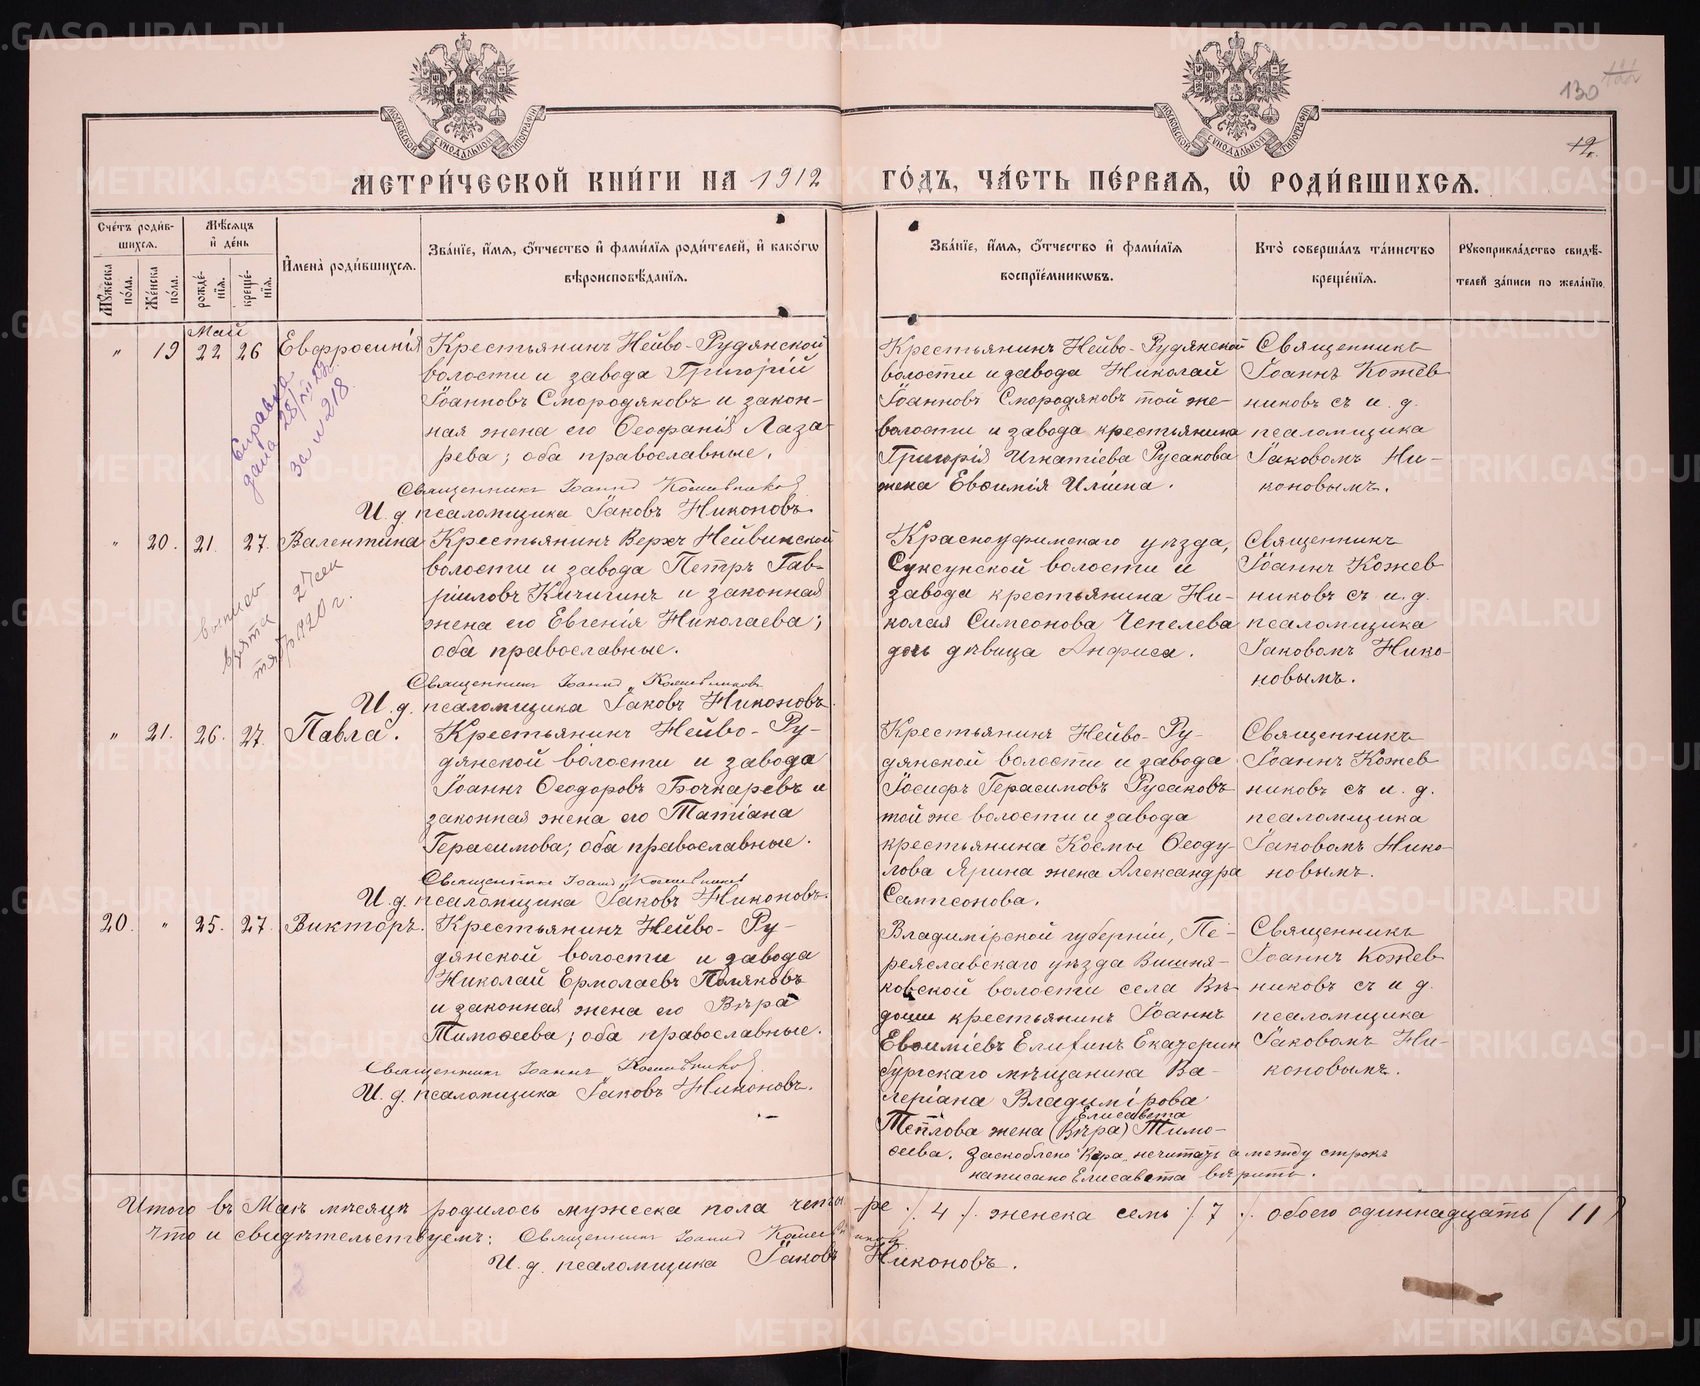 130
12.
МЕТРИ́ЧЕСКОЙ КНИ́ГИ НА 1912 ГО́ДЪ, ЧА́СТЬ ПЕ́РВАѦ, Ѽ РОДИ́ВШИХСѦ.
Сче́тъ роди́в-
шихсѧ.
Мꙋ́жеска по́ла.
Же́нска по́ла.
Мѣ́сѧцъ
и҆ де́нь
рожде́-
нїѧ.
креще́-
нїѧ.
И҆мена̀ роди́вшихсѧ.
Зва́нїе, и҆́мѧ, ѻ҆́тчество и҆ фами́лїѧ роди́телей, и҆ како́гѡ
вѣроисповѣ́данїѧ.
Зва́нїе, и҆́мѧ, ѻ҆́тчество и҆ фами́лїѧ
воспрїе́мникѡвъ.
Кто̀ соверша́лъ та́инство
креще́нїѧ.
Рꙋкоприкла́дство свидѣ́-
телей за́писи по жела́нїю.
Май
" 19 22 26 Евфросинія
Крестьянинъ Нейво-Рудянской
волости и завода Григорій
Іоанновъ Смородяковъ и закон-
ная жена его Ѳеофанія Лаза-
рева; оба православные.
Священникъ Іоаннъ Кожевниковъ
И. д. псаломщика Іаковъ Никоновъ.
Крестьянинъ Нейво-Рудянской
волости и завода Николай
Іоанновъ Смородяковъ той же
волости и завода крестьянина
Григорія Игнатіева Русакова
жена Евѳимія Ильина.
Священникъ
Іоаннъ Кожев-
никовъ съ и. д.
псаломщика
Іаковомъ Ни-
коновымъ.
Справка
дана 28/XII
за № 218.
" 20. 21. 27. Валентина
Крестьянинъ Верхъ Нейвинской
волости и завода Петръ Гав-
рииловъ Кичигинъ и законная
жена его Евгенія Николаева;
оба православные.
Священникъ Іоаннъ Кожевниковъ
И. д. псаломщика Іаковъ Никоновъ.
Красноуфимскаго уѣзда,
Суксунской волости и
завода крестьянина Ни-
колая Симеонова Чепелева
дочь дѣвица Анфиса.
Священникъ
Іоаннъ Кожев-
никовъ съ и. д.
псаломщика
Іаковомъ Нико-
новымъ.
взята
1920 г.
" 21. 26. 27. Павла.
Крестьянинъ Нейво-Ру-
дянской волости и завода
Іоаннъ Ѳеодоровъ Бочкаревъ и
законная жена его Татіана
Герасимова; оба православные.
Священникъ Іоаннъ Кожевниковъ
И. д. псаломщика Іаковъ Никоновъ.
Крестьянинъ Нейво-Ру-
дянской волости и завода
Іосифъ Герасимовъ Русаковъ
той же волости и завода
крестьянина Космы Ѳеоду-
лова Ярина жена Александра
Сампсонова.
Священникъ
Іоаннъ Кожев-
никовъ съ и. д.
псаломщика
Іаковомъ Нико-
новымъ.
20. " 25. 27. Викторъ.
Крестьянинъ Нейво-Ру-
дянской волости и завода
Николай Ермолаевъ Поляковъ
и законная жена его Вѣра
Тимоѳеева; оба православные.
Священникъ Іоаннъ Кожевниковъ
И. д. псаломщика Іаковъ Никоновъ.
Владимірской губерніи, Пе-
реяславскаго уѣзда Вишня-
ковской волости села Вѣ-
доши крестьянинъ Іоаннъ
Евѳиміевъ Елифинъ Екатерин
бургскаго мѣщанина Ва-
леріана Владимірова
Елисавета
Теплова жена (Вѣра) Тимо-
ѳеева. Заскоблено Вѣра, не читать а между строкъ
написано Елисавета вѣрить.
Священникъ
Іоаннъ Кожев-
никовъ съ и д.
псаломщика
Іаковомъ Ни-
коновымъ.
Итого въ Маѣ мѣсяцѣ родилось мужеска пола четыре ./. 4 ./. женска семь ./. 7 ./. обоего одиннадцать (11)
Что и свидѣтельствуемъ: Священникъ Іоаннъ Кожевниковъ
И. д. псаломщика Іаковъ Никоновъ.
METRIKI.GASO-URAL.RU